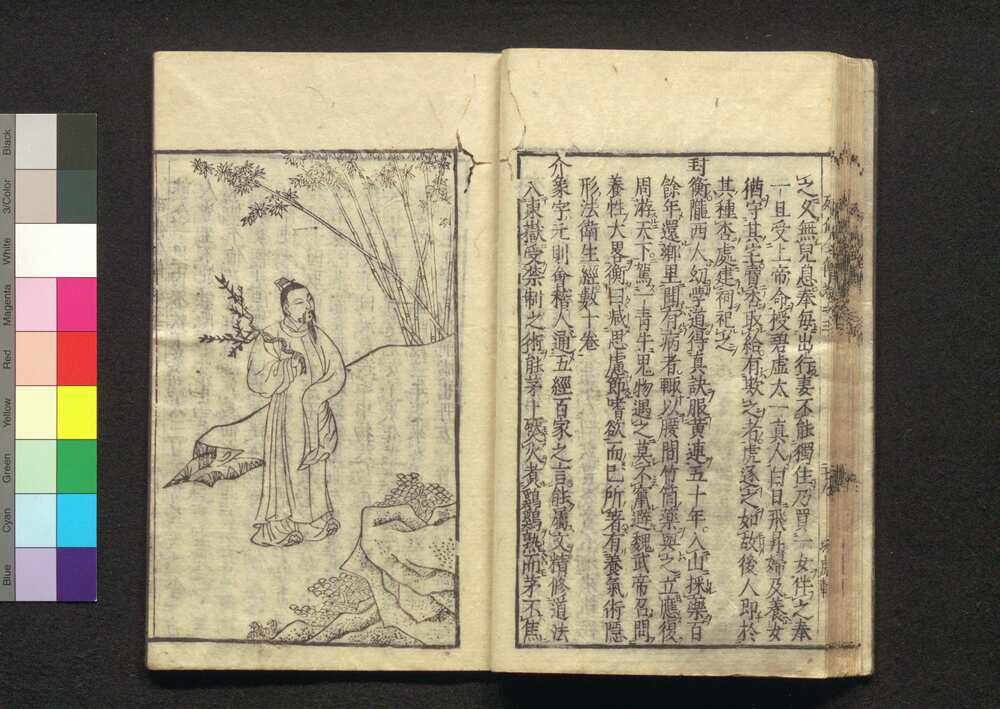 之久無兒息奉每出行妻不能獨住乃買一女伴之奉
一旦受上帝命授碧虛太一真人白日飛昇婦及養女
猶守其宅賣杏取給有欺之者虎逐之如故後人即於
其種杏處建祠祀之
封衡隴西人幼學道得真訣服黃連五十年入山採藥百
餘年還鄉里聞有病者輙以腰間竹筒藥與之立應後
周游天下駕一青牛鬼物遇之莫不竄避魏武帝召問
養性大畧衡曰減思慮節嗜欲而已所著有養氣術隱
形法衛生經數十卷
介象字元則會稽人通五經百家之言能屬文精修道法
入東嶽受禁制之術能茅上燃火煮鷄鷄熟而茅不焦
Black
3/Color
White
Magenta
Red
Yellow
Green
Cyan
Blue